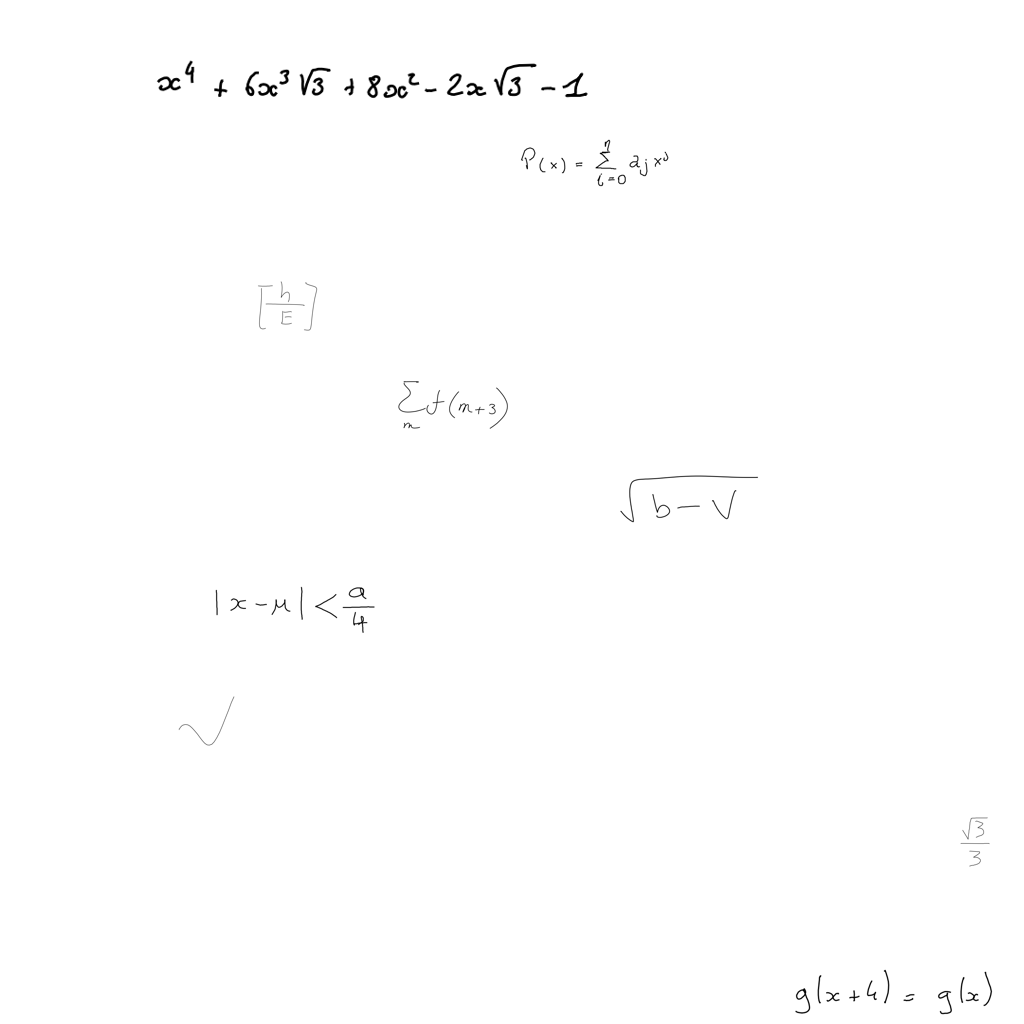 x^4 + 6x^3 √3 + 8x^2 - 2x √3 - 1
P(x) = \sum_{i=0}^{n} a_j x^j
[\frac{h}{E}]
\sum_{m} f(m+3)
\sqrt{b - V}
|x - μ| < \frac{a}{4}
√
\frac{\sqrt{3}}{3}
g(x+4) = g(x)